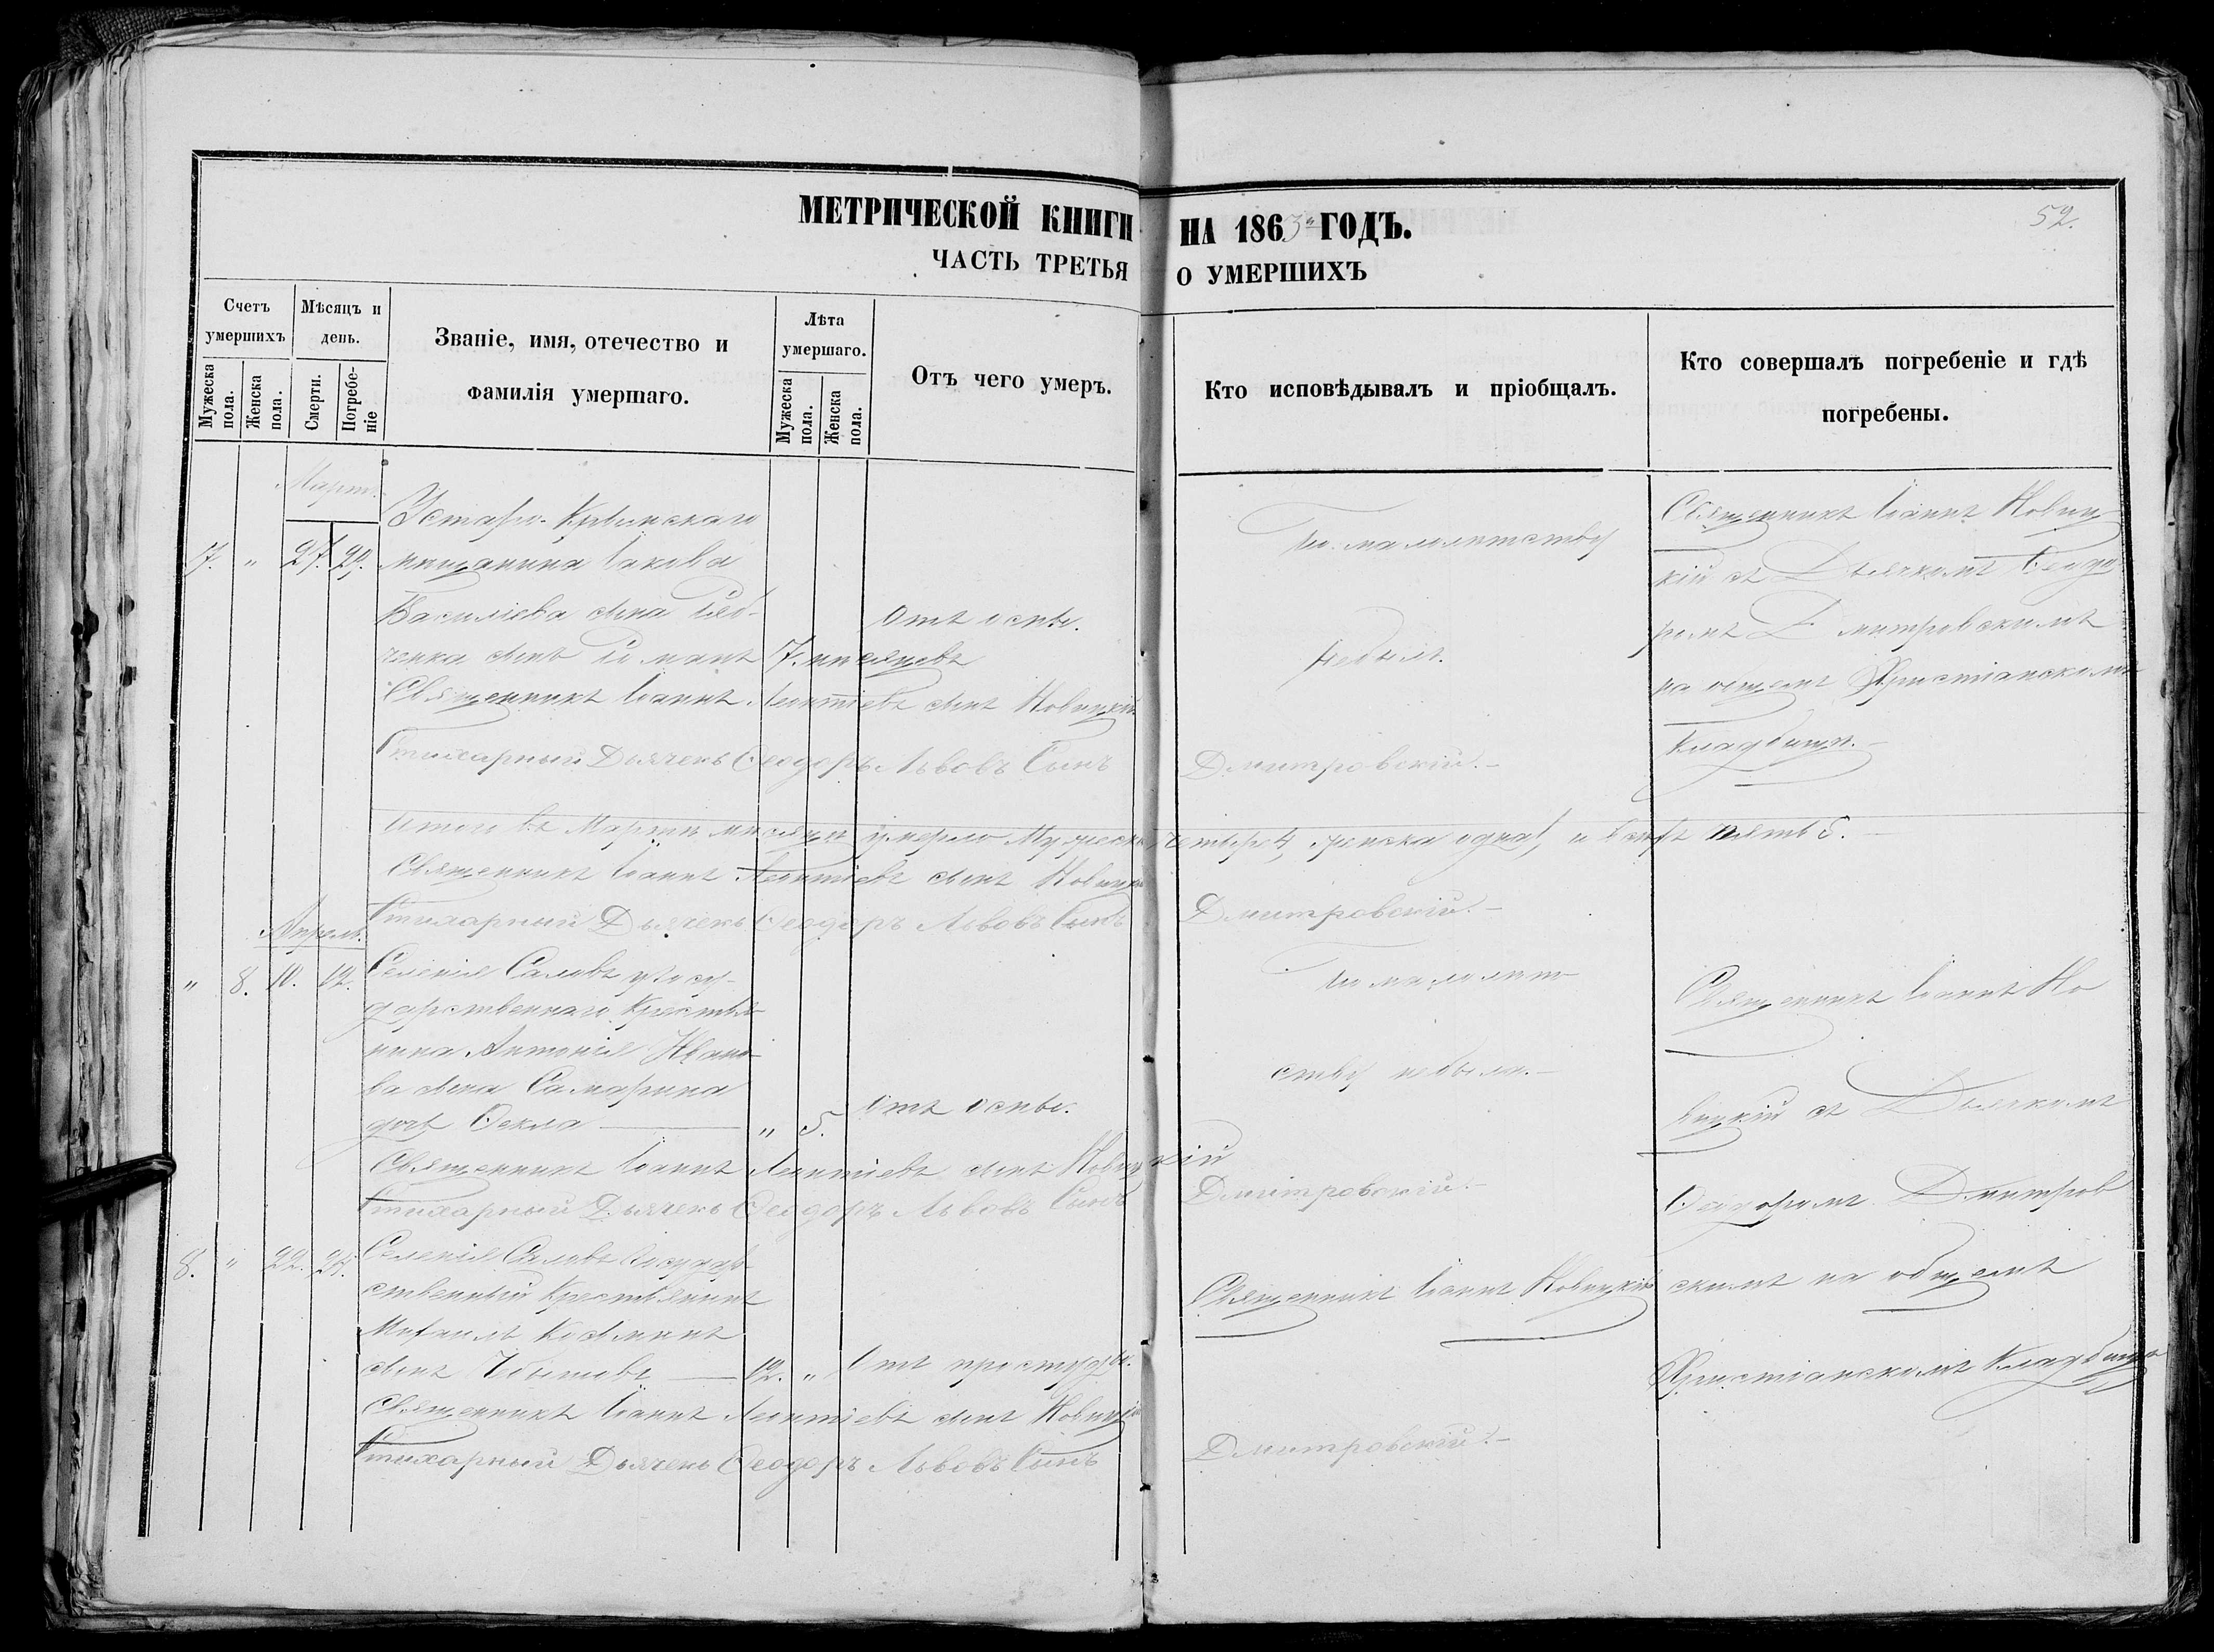 МЕТРИЧЕСКОЙ КНИГИ НА 1863й ГОДЪ.
52.
ЧАСТЬ ТРЕТЬЯ О УМЕРШИХЪ
Счетъ умершихъ
Мужеска пола.
Женска пола.
Мѣсяцъ и день.
Смерти.
Погребеніе
Званіе, имя, отечество и
фамилія умершаго.
Лѣта умершаго.
Мужеска пола.
Женска пола.
Отъ чего умеръ.
Кто исповѣдывалъ и пріобщалъ.
Кто совершалъ погребеніе и гдѣ
погребены.
Мартъ
7. " 27. 29.
Старо-Крымскаго
мѣщанина Іакова
Василіева сына
ченка сынъ Романъ
7. мѣсяцевъ
Отъ оспы.
По малолѣтству
небылъ.
Священникъ Іоаннъ Новиц
кій съ Дьячкомъ Ѳеодо
ромъ Дмитровскимъ
на общемъ Христіанскомъ
Кладбищѣ.
Священникъ Іоаннъ Леонтіевъ сынъ Новицкій
Стихарный Дьячекъ Ѳеодоръ Львовъ Сынъ Дмитровскій.
Итого въ Мартѣ мѣсяцѣ умерло Мужеска четыре 4, женска одна 1, и всѣхъ пять 5.
Священникъ Іоаннъ Леонтіевъ сынъ Новицкій
Стихарный Дьячекъ Ѳеодоръ Львовъ Сынъ Дмитровскій.
Апрель.
" 8. 10. 12.
Селенія Саловъ Госу-
дарственнаго Крестья
нина Антонія Ивано
ва сына Самарина
дочь Ѳекла
" 5.
Отъ оспы.
По малолѣт
ству небыла.
Священникъ Іоаннъ Но
вицкій съ Дьячкомъ
Ѳеодоромъ Дмитров
скимъ на общемъ
Христіанскомъ Кладбищѣ
Священникъ Іоаннъ Леонтіевъ сынъ Новицкій
Стихарный Дьячекъ Ѳеодоръ Львовъ Сынъ Дмитровскій.
8. " 22. 24.
Селенія Саловъ Государ
ственный Крестьянинъ
Михаилъ Косминъ
сынъ
12. "
Отъ простуды.
Священникъ Іоаннъ Новицкій
Священникъ Іоаннъ Леонтіевъ сынъ Новицкій
Стихарный Дьячекъ Ѳеодоръ Львовъ Сынъ Дмитровскій.